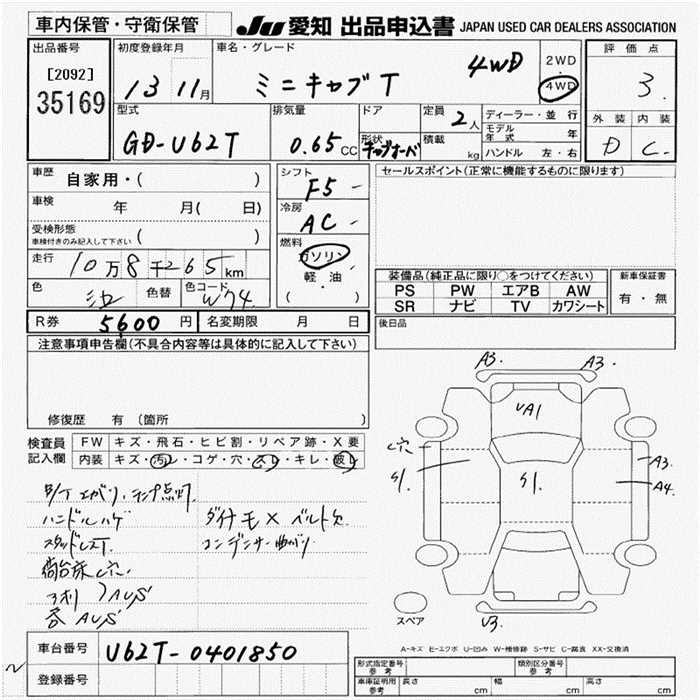 車内保管・守衛保管
JU 愛知 出品申込書 JAPAN USED CAR DEALERS ASSOCIATION
出品番号
[2092]
35169
初度登録年月
13 11月
車名・グレード
ミニキャブT 4WD
2WD
4WD
評価点
3.
外装 内装
D C-
型式
GD-U62T
排気量
0.65 CC
ドア
形状
定員
2人
積載
kg
ディーラー・並行
モデル年式 年
ハンドル 左・右
車歴 自家用・( )
車検 年 月( 日)
受検形態
車検付きのみ記入して下さい ( )
走行 10万8千265km
色 色替 色コード W74.
シフト F5 -
冷房 AC -
燃料
ガソリン
軽油
( )
セールスポイント(正常に機能するものに限ります)
装備品(純正品に限り〇をつけてください)
PS PW エアB AW
SR ナビ TV カワシート
新車保証書
有・無
後日品
R券 5600円 名変期限 月 日
注意事項申告欄(不具合内容等は具体的に記入して下さい)
修復歴 有 (箇所 )
検査員記入欄
FW キズ・飛石・ヒビ割・リペア跡・X要
内装 キズ・汚レ・コゲ・穴・スレ・キレ・破レ
ハンドルハゲ
スタッドレス
荷台床 穴
各 AUS
ダイナモ×ベルト欠
コンデンサー曲がり
A3. A3.
UA1
C穴
S1. S1.
A3.
A4.
U3.
スペア
A-キズ E-エクボ U-凹み W-補修跡 S-サビ C-腐食 XX-交換済
車台番号 U62T-0401850
登録番号
形式指定番号 参考
類別区分番号 参考
車庫証明用 参考 長さ cm 幅 cm 高さ cm